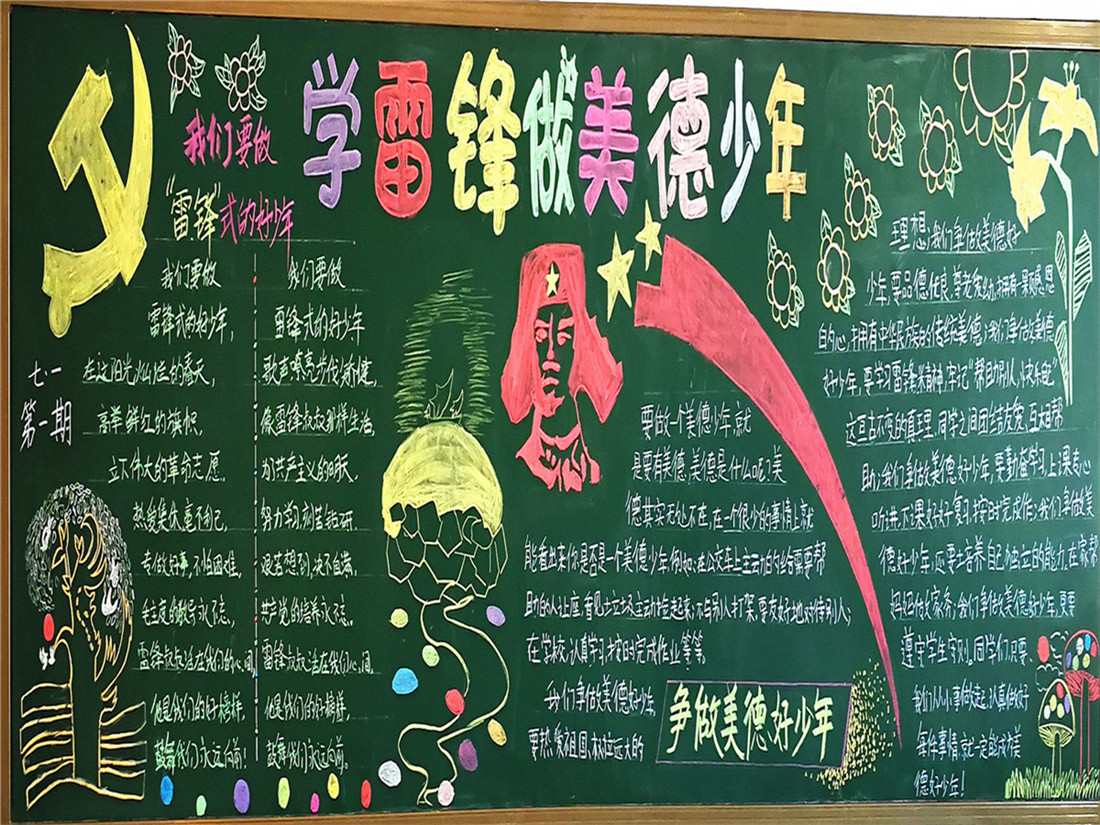 学雷锋做美德少年
我们要做
“雷锋”式的好少年
七·一
第一期
我们要做
雷锋式的好少年,
在这阳光灿烂的春天,
高举鲜红的旗帜
立下伟大的革命志愿。
热爱集体毫不利己,
专做好事,不怕困难。
毛主席的教导永不忘,
雷锋叔叔活在我们的心间
他是我们的好榜样,
鼓舞我们永远向前!
我们要做
雷锋式的好少年
歌声嘹亮步伐矫健,
像雷锋叔叔那样生活,
为共产主义的明天,
努力学习刻苦钻研.
艰苦想到,决不自满.
共产党的培养永不忘.
雷锋叔叔活在我们心间
他是我们的好榜样,
鼓舞我们永远向前。
要做一个美德少年就
是要有美德,美德是什么呢?美
德其实无处不在,在一个很小的事情上就
能看出来你是否是一个美德少年,例如:在公交车上主动的给需要帮
助的人让座,看见垃圾主动捡起来,不与别人打架,要友好地对待别人;
在学校,认真学习,按时完成作业等等。
我们争做美德好少年,
要热爱祖国,树立远大的
争做美德好少年
理想;我们争做美德好
少年,要品德优良,尊老爱幼,拥有一颗感恩
的心,拥有中华民族的传统美德;我们争做美德
好少年,要学习雷锋精神,牢记“帮助别人,快乐自己”
这亘古不变的真理,同学之间团结友爱,互相帮
助;我们争做美德好少年,要勤奋学习,上课专心
听讲,下课好好复习,按时完成作;我们争做美
德好少年,还要培养自己独立的能力,在家帮
妈妈做家务;我们争做美德好少年,更要
遵守学生守则。同学们,只要
我们从小事做起,认真做好
每件事情,就一定能成美
德好少年!